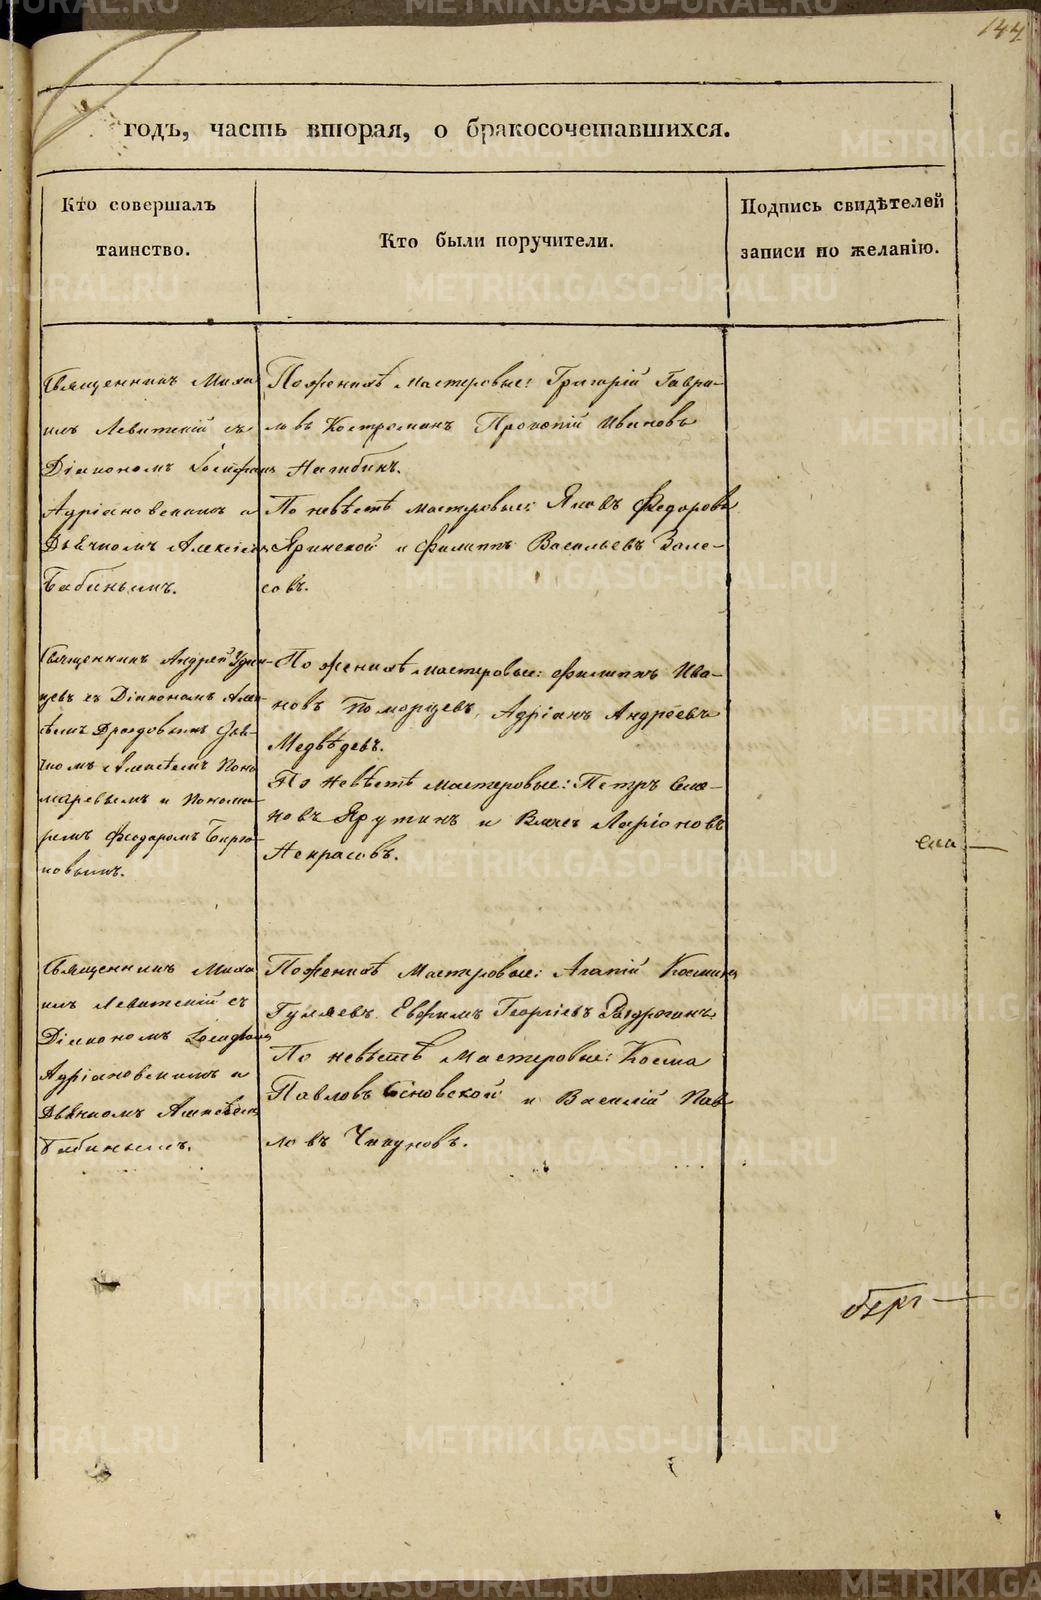 144
годъ, часть вторая, о бракосочетавшихся.
Кто совершалъ
таинство.
Кто были поручители.
Подпись свидѣтелей
записи по желанію.
Священникъ Миха
илъ Левитскій съ
Діакономъ Іосифомъ
Адріановскимъ и
Дьячкомъ Алексѣемъ
Бабинымъ.
По женихѣ мастеровые: Григорій Гаври-
ловъ Костроминъ Прокопій Ивановъ
Нагибинъ.
По невѣстѣ мастеровые: Яковъ Федоровъ
Яринской и Филиппъ Васильевъ Зале-
совъ.
Священникъ Андрей Удин-
цевъ съ Діакономъ Алек-
сѣемъ Дроздовымъ Дья-
чкомъ Алексѣемъ Поно
маревымъ и Понома-
ремъ Феодоромъ Бирю-
ковымъ.
По женихѣ мастеровые: Филиппъ Ива-
новъ Поморцевъ, Адріанъ Андреевъ
Медвѣдевъ.
По невѣстѣ мастеровые: Петръ Семе-
новъ Ярутинъ и Власъ Ларіоновъ
Некрасовъ.
Священникъ Миха
илъ Левитскій съ
Діакономъ Іосифомъ
Адріановскимъ и
Дьячкомъ Алексѣемъ
Бабинымъ.
По женихѣ Мастеровые: Агапій Косминъ
Гуляевъ Евфимъ Георгіевъ
По невѣстѣ Мастеровые: Косма
Павловъ Сѣновской и Василій Пав
ловъ Чикуновъ.
METRIKI.GASO-URAL.RU